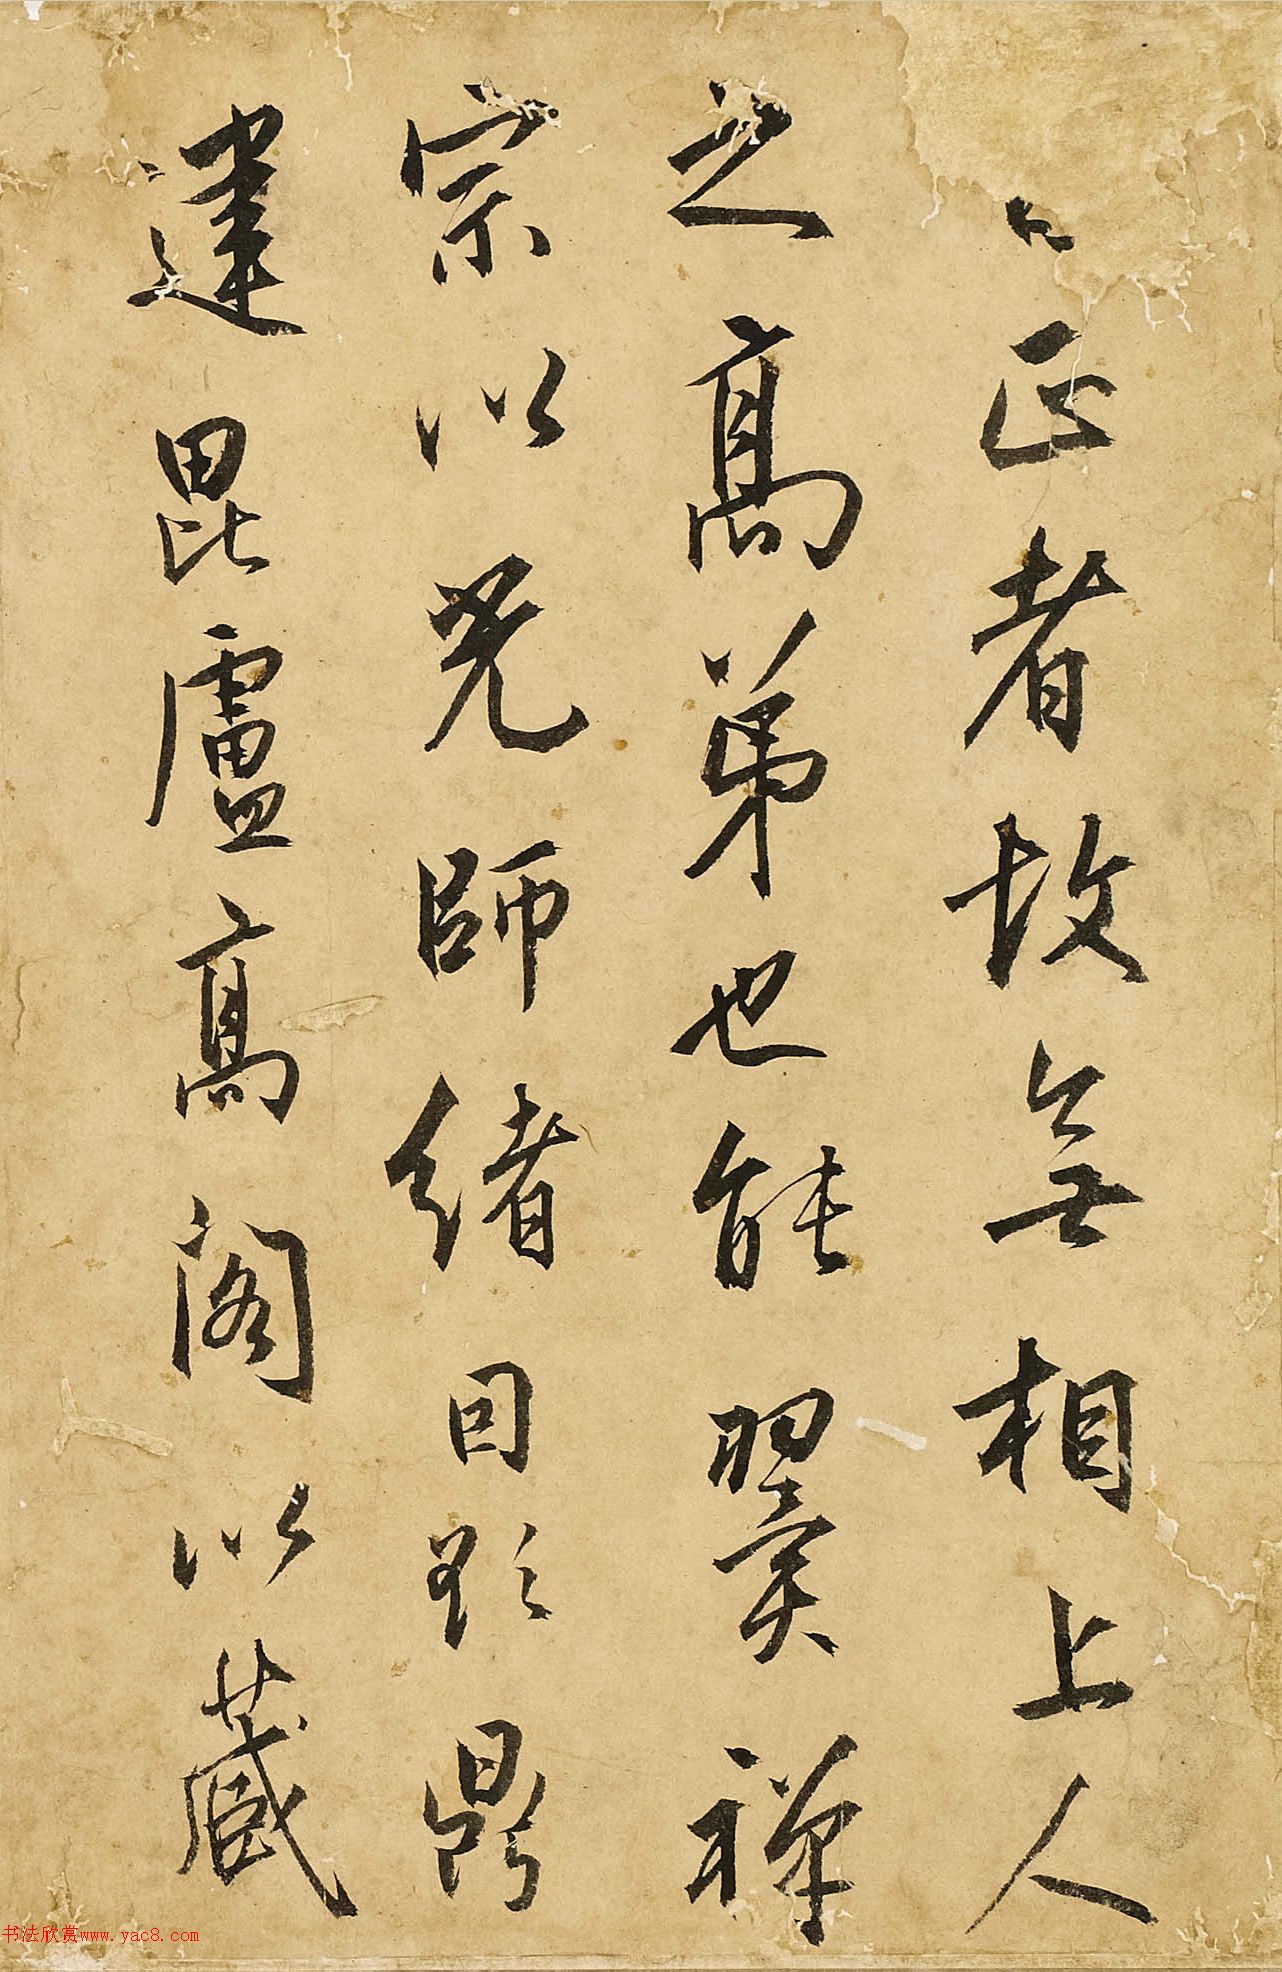 正者故無相上人
之高弟也能翼禪
宗以光師緒因欲鼎
建毘盧高閣以藏
书法欣赏www.yac8.com